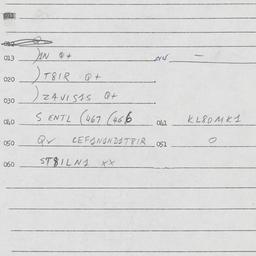 013 )AN Q+
020 )T8IR Q+
030 )ZAVISIS Q+
040 S ENTL (467 (466 041 KL8OMK1
050 QV CEFANANDIT8IR 051 0
060 ST8ILNA XX